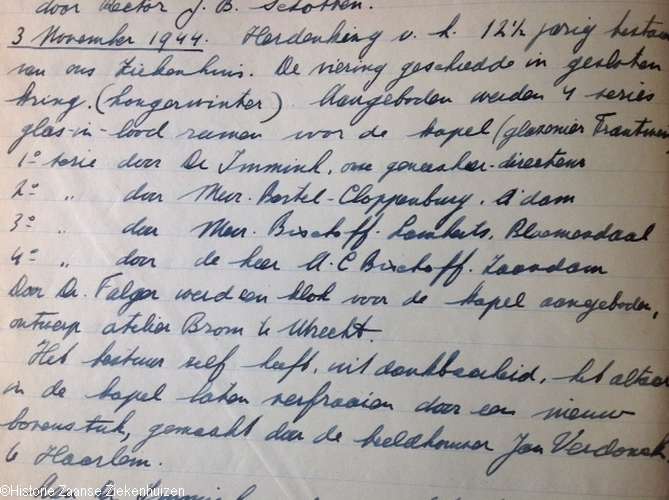 door Rector J. B. Scholten.
3 November 1944. Herdenking v. h. 12½ jarig bestaan
van ons Ziekenhuis. De viering geschiedde in gesloten
kring, (hongerwinter) Aangeboden werden 4 series
glas-in-lood ramen voor de kapel (glazenier Trautwein
1e serie door Dr Immink, onze geneesheer-directeur
2e " door Mevr. Bartel-Cloppenburg, A'dam
3e " door Mevr. Bischoff. Lamberts, Bloemendaal
4e " door de heer A. C Bischoff. Zaandam
Door Dr. Falger werd een klok voor de kapel aangeboden,
ontwerp atelier Brom te Utrecht.
Het bestuur zelf heeft, uit dankbaarheid, het altaar
in de kapel laten verfraaien door een nieuw
bovenstuk, gemaakt door de beeldhouwer Jan Verdonck
te Haarlem.
©Historie Zaanse Ziekenhuizen